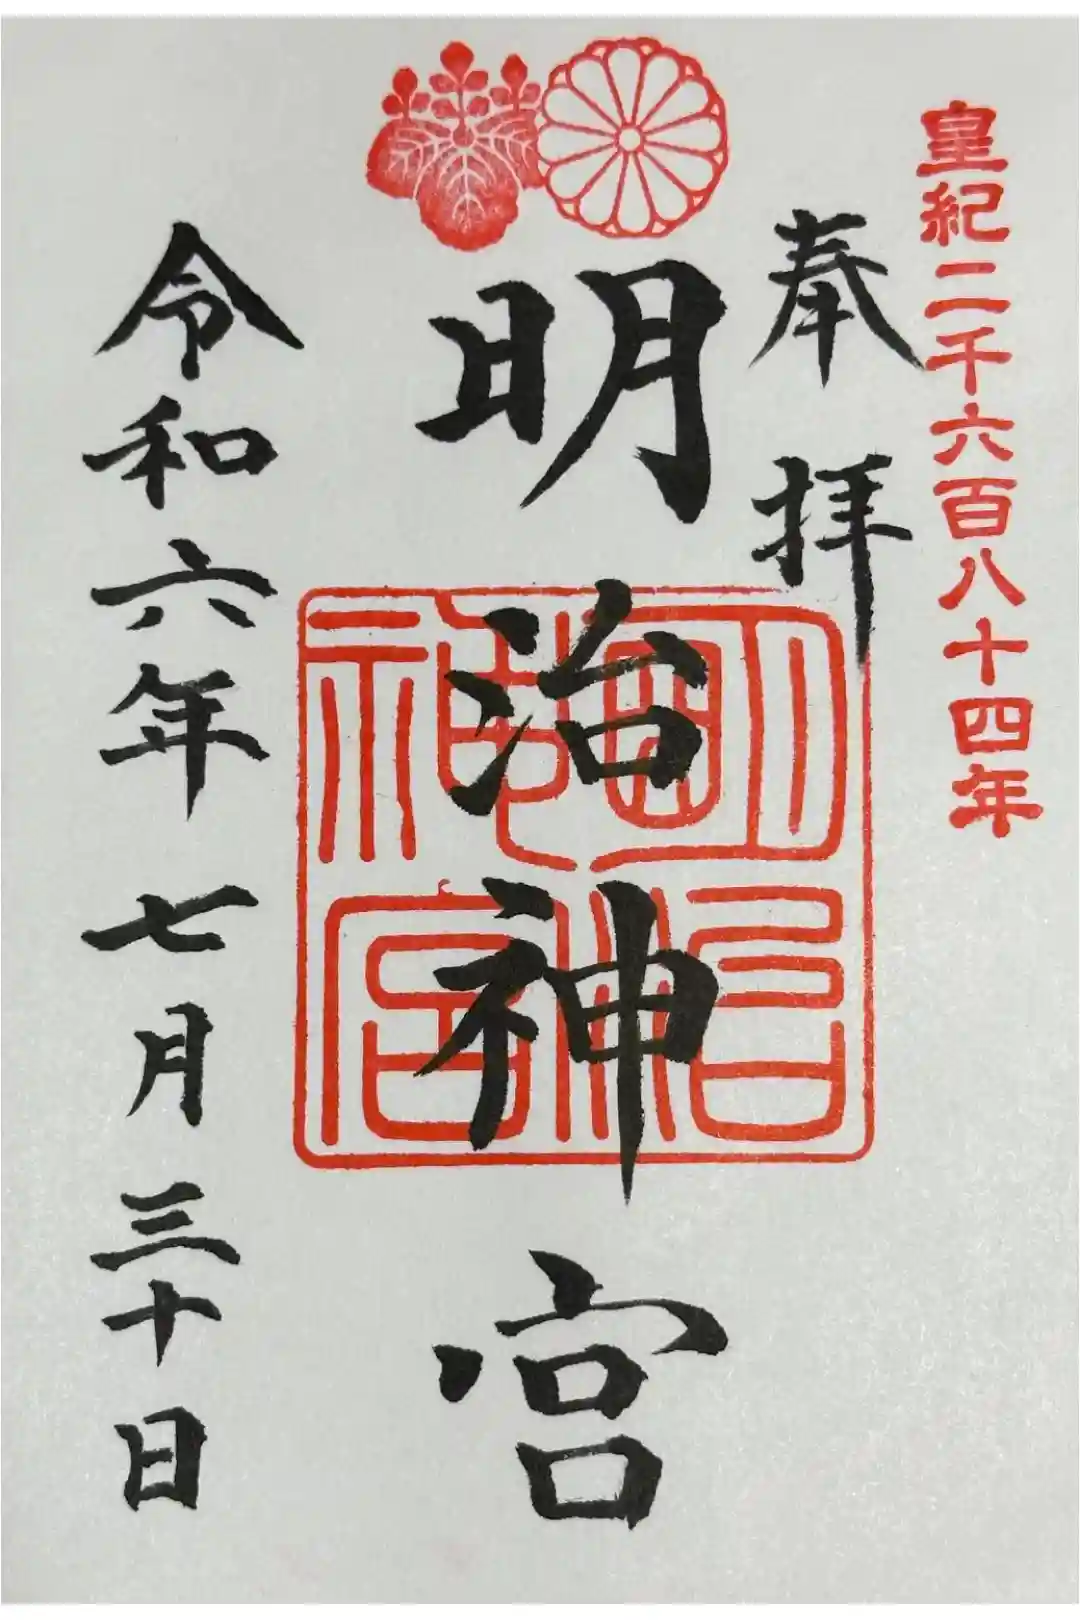 皇紀二千六百八十四年
奉拝
明治神宮
明治
神宮
令和六年七月三十日